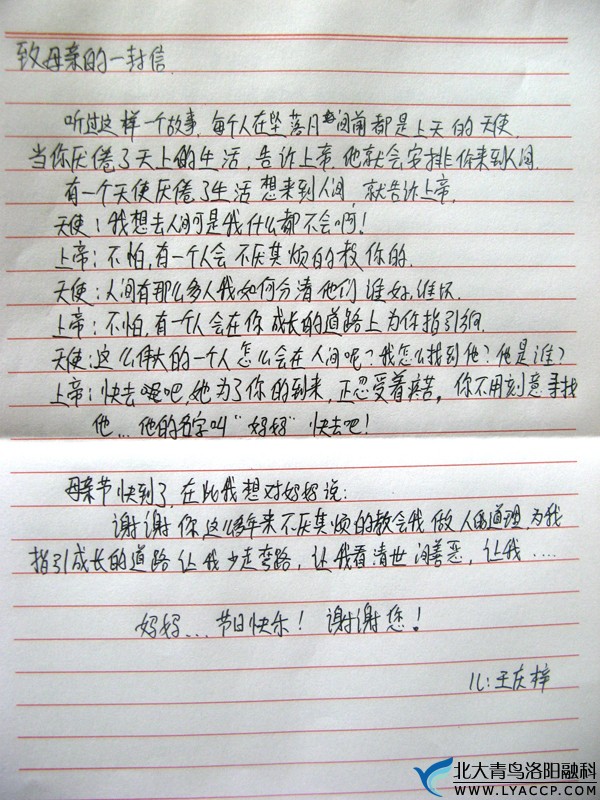 致母亲的一封信
听过这样一个故事,每个人在坠落人间前都是上天的天使,
当你厌倦了天上的生活,告诉上帝,他就会安排你来到人间.
有一个天使厌倦了生活想来到人间,就告诉上帝.
天使:我想去人间可是我什么都不会啊!
上帝:不怕,有一个人会不厌其烦的教你的.
天使:人间有那么多人我如何分清他们谁好,谁坏.
上帝:不怕,有一个人会在你成长的道路上为你指引
天使:这么伟大的一个人怎么会在人间呢?我怎么找到他?他是谁?
上帝:快去吧,她为了你的到来,正忍受着痛苦,你不用刻意寻找
他...他的名字叫"妈妈"快去吧!
母亲节快到了,在此我想对妈妈说:
谢谢你这么多年来不厌其烦的教会我做人的道理,为我
指引成长的道路让我少走弯路,让我看清世间善恶,让我....
妈妈...节日快乐!谢谢您!
儿:王庆梓
北大青鸟洛阳融科
WWW.LYACCP.COM